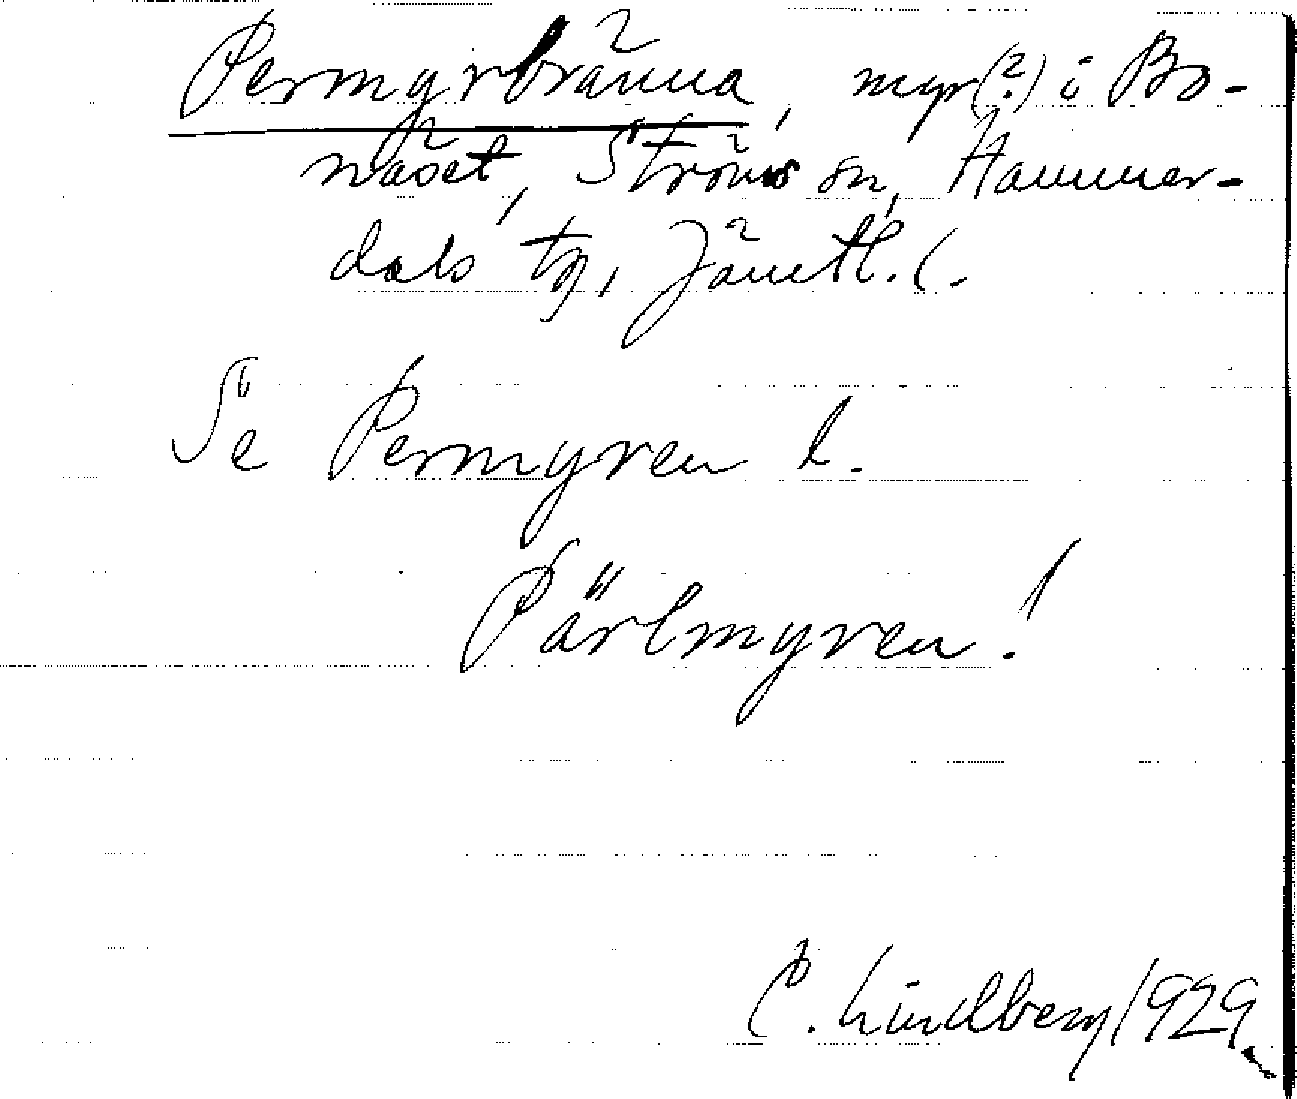 Permyrbränna, myr(?) i Bo-
näset, Ströms sn, Hammer-
dals tg, Jämtl. l.
Se Permyren l.
Pärlmyren!
C. Lindberg 1929